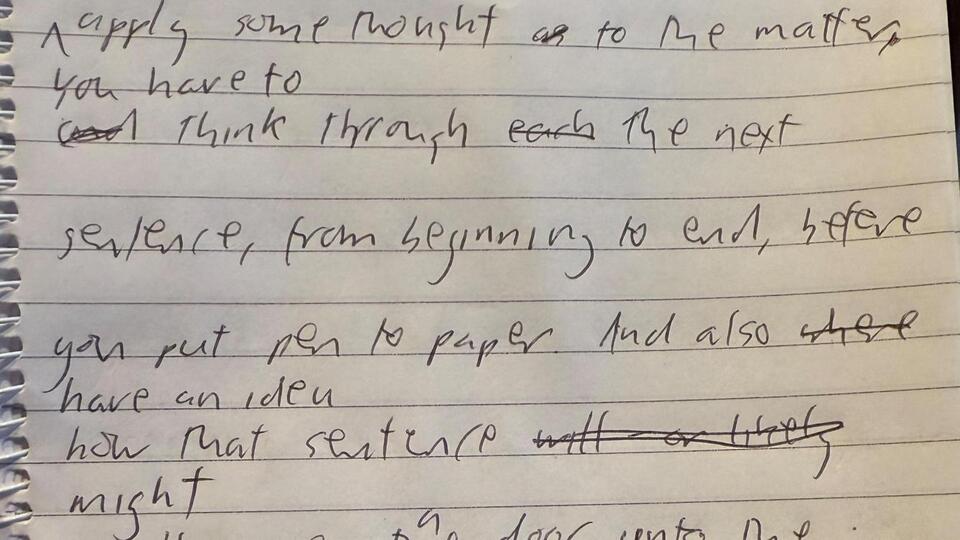 apply some thought as to the matter,
you have to
and think through each the next
sentence, from beginning to end, before
you put pen to paper. And also where
have an idea
how that sentence will or likely
might
a door onto the